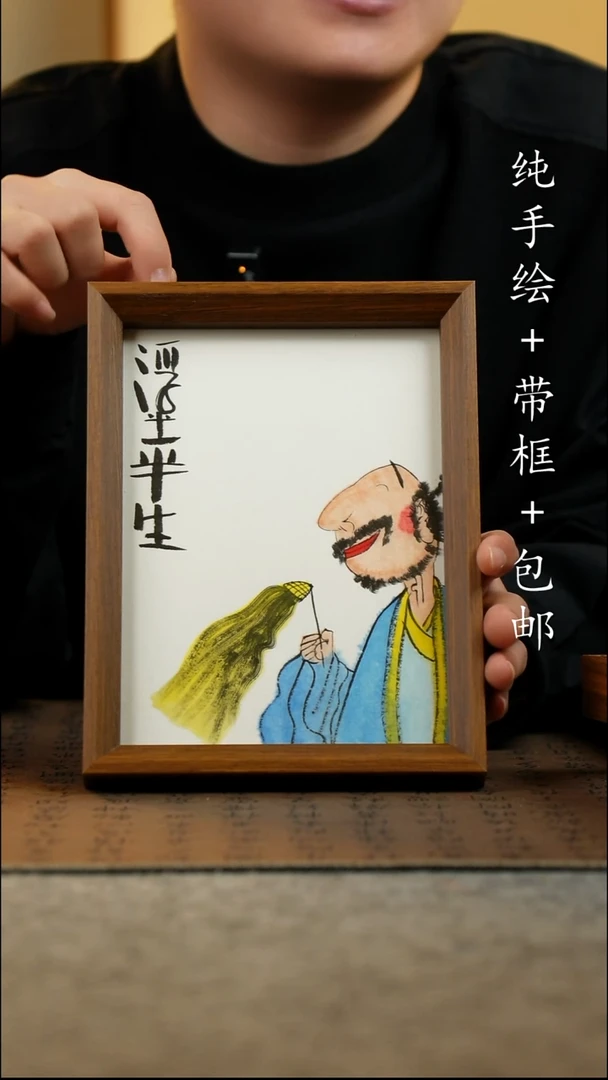 纯手绘+带框+包邮
尘半生